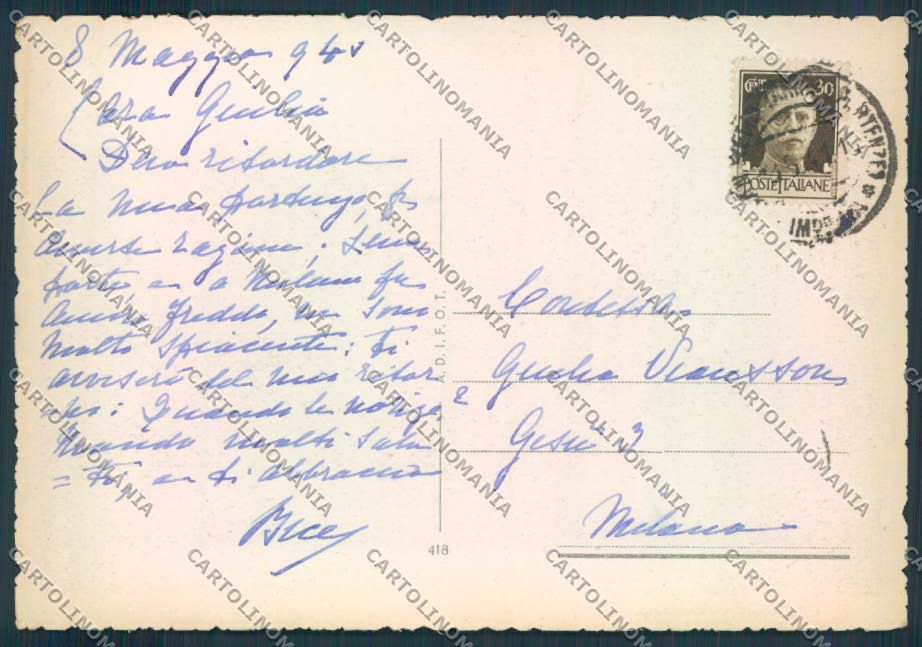 8 Maggio 940
Cara Giulia
Devo ritardare
la mia partenza, per
diverse ragioni.
parte, e a Milano fa
ancora freddo, ne sono
molto spiacente: ti
avviserò del mio ritor
no: Quando le notizie
Mando molti salu
= ti, e ti abbraccio
Bice
A.D.I.F.O.T.
418
CENT. 30
POSTE ITALIANE
Contessa
Giulia
Gesù 2
Milano
CARTOLINOMANIA